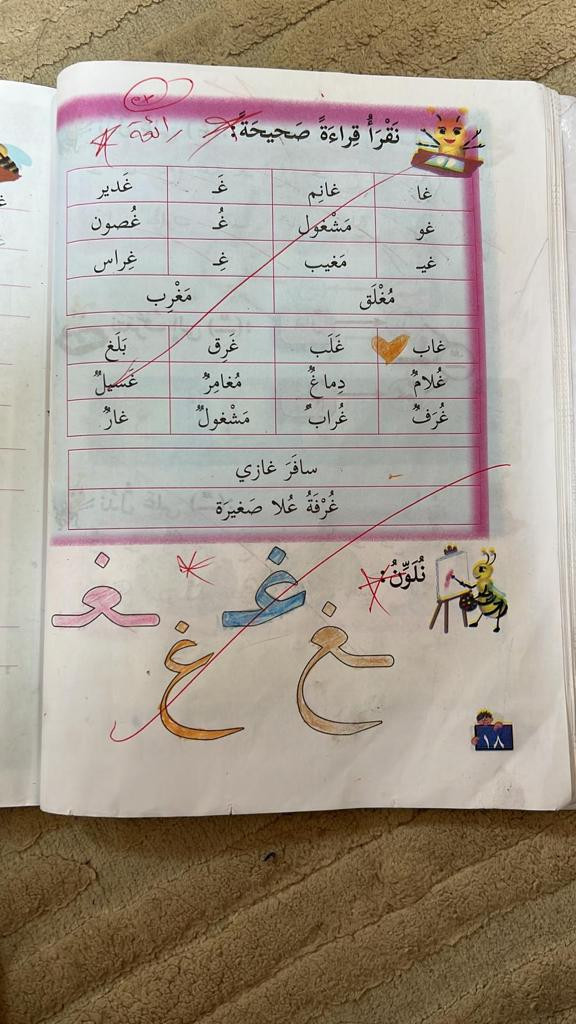 نَقْرَأُ قِراءَةً صَحيحَةً: رائعة
غا غانِم غَـ غَدير
غو مَشْغول غُـ غُصون
غيـ مَغيب غِـ غِراس
مُغْلَق مَغْرِب
غاب غَلَب غَرِق بَلَغ
غُلامٌ دِماغٌ مُغامِرٌ غَسيلٌ
غُرَفٌ غُرابٌ مَشْغولٌ غارٌ
سافَرَ غازي
غُرْفَةُ عُلا صَغيرَة
نُلَوِّنُ:
غـ ـغـ
ـغ غ
١٨